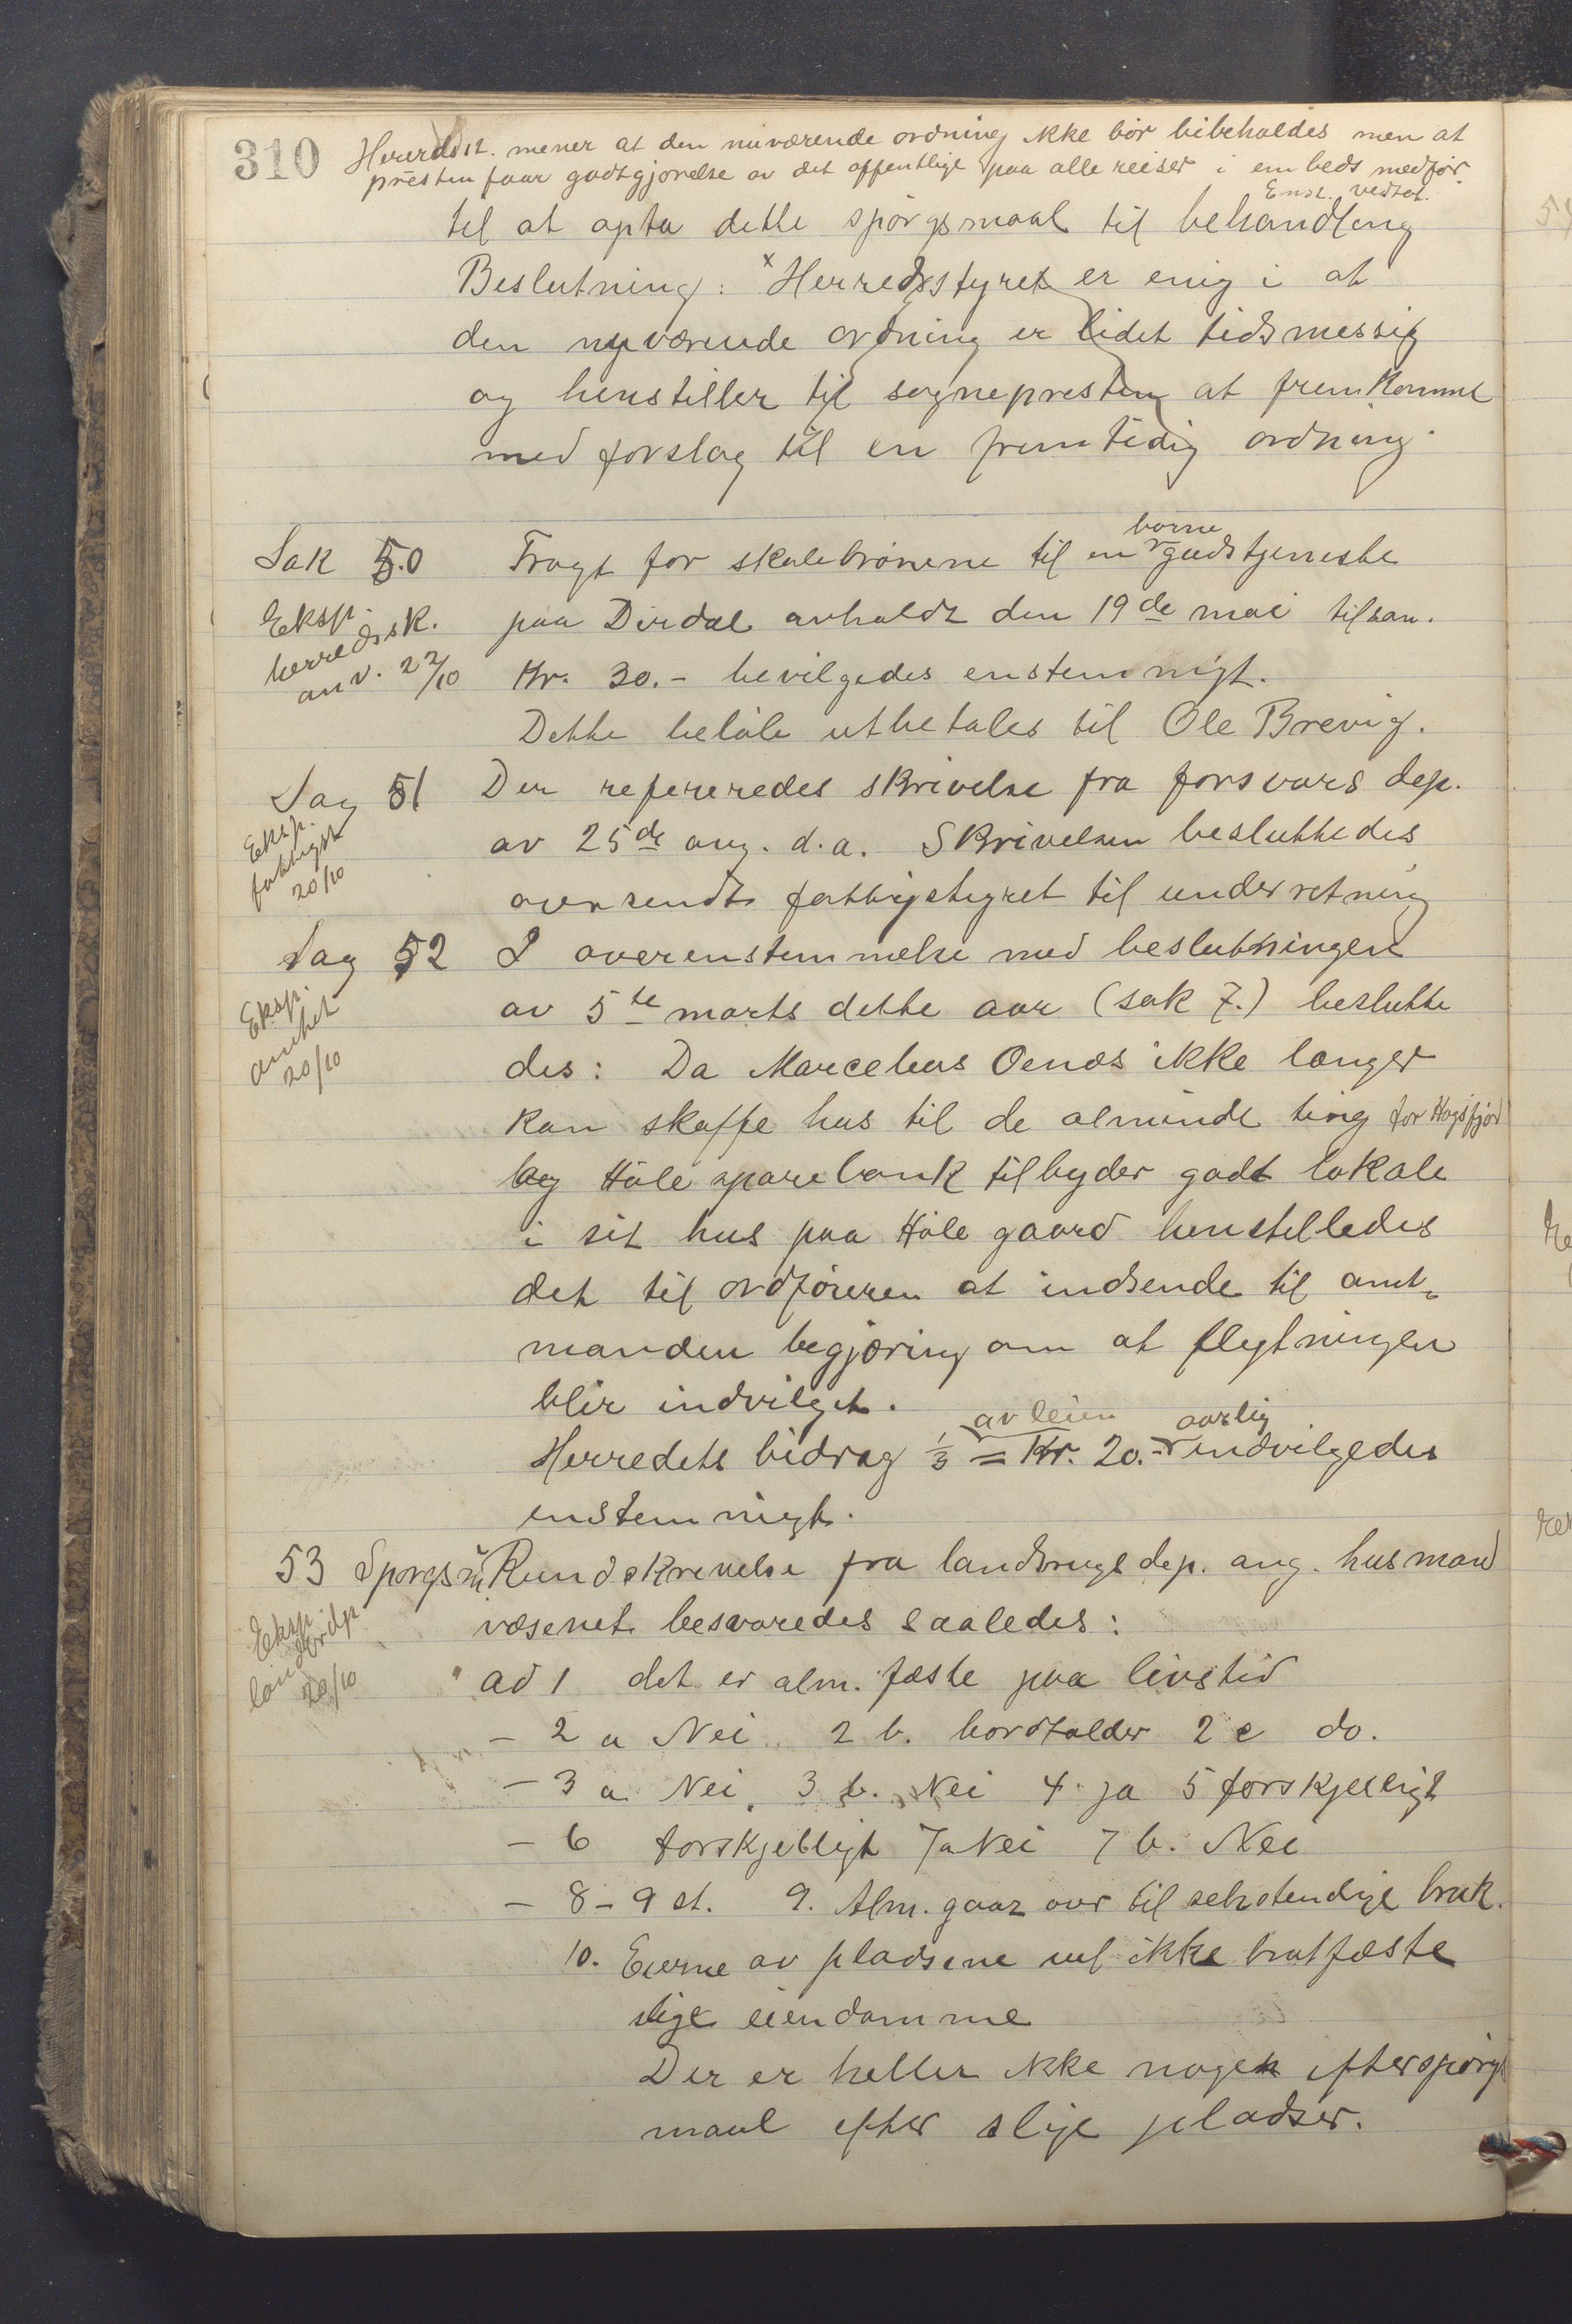 310
Herredsst. mener at den nuværende ordning ikke bör bibeholdes men at
presten faar godtgjörelse av det offentlige paa alle reiser i embeds medför.
Enst. vedtat.
til at opta dette spörgsmaal til behandling
Beslutning: x Herredsstyret er enig i at
den nuværende ordning er lidet tidsmessig
og henstiller til sognepresten at fremkomme
med forslag til en fremtidig ordning.
Sak 50 Fragt for skolebrönene til en barne gudstjeneste
Eksp. herredsk. anv. 22/10
paa Dirdal avholdt den 19de mai tilsan.
Kr. 30.- bevilgedes enstemmigt.
Dette belöb utbetales til Ole Brevig.
Sag 51 Der refereredes skrivelse fra forsvars dep.
Eksp. fattigst 20/10
av 25de aug. d.a. Skrivelsen besluttedes
oversendt fattigstyret til underretning
Sag 52 I overenstemmelse med beslutningen
Eksp. amtet 20/10
av 5te marts dette aar (sak 7.) beslutte
des: Da Marcelius Oenæs ikke længer
kan skaffe hus til de almindl ting for Högsfjord
og Höle sparebank tilbyder godt lokale
i sit hus paa Höle gaard henstilledes
det til ordföreren at indsende til amt-
manden begjæring om at flytningen
blir indvilget.
Herredets bidrag 1/3 av leien = Kr. 20.- aarlig indvilgedes
enstemmigt.
53 Spörgsm Rundskrivelse fra landbrugsdep. ang. husmand
Eksp landbrdp. 20/10
væsenet besvaredes saaledes:
ad 1 det er alm. fæste paa livstid
- 2 a Nei 2 b. bortfalder 2 c do.
- 3 a Nei, 3 b. Nei 4. ja 5 forskjelligt
- 6 forskjelligt 7a Nei 7 b. Nei
- 8 - 9 st. 9. Alm. gaar over til selvstendige bruk.
10. Eierne av pladsene vil ikke bortfæste
slige eiendomme
Der er heller ikke nogen efterspörgs
maal efter slige pladser.